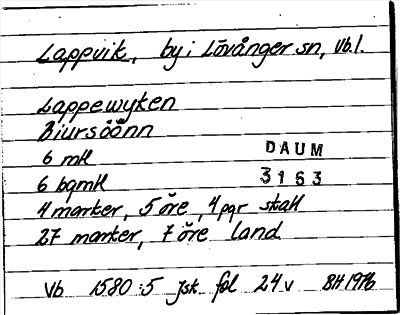 Lappvik, by i Lövånger sn, Vb.l.
Lappewyken
Biursöönn
6 mk
DAUM
6 bgmk
3163
4 marker, 5 öre, 4 pgr skatt
27 marker, 7 öre land
Vb 1580:5 jsk fol 24v BH 1976